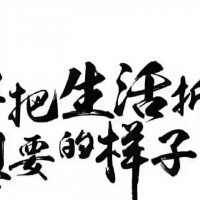 把生活
要的样子